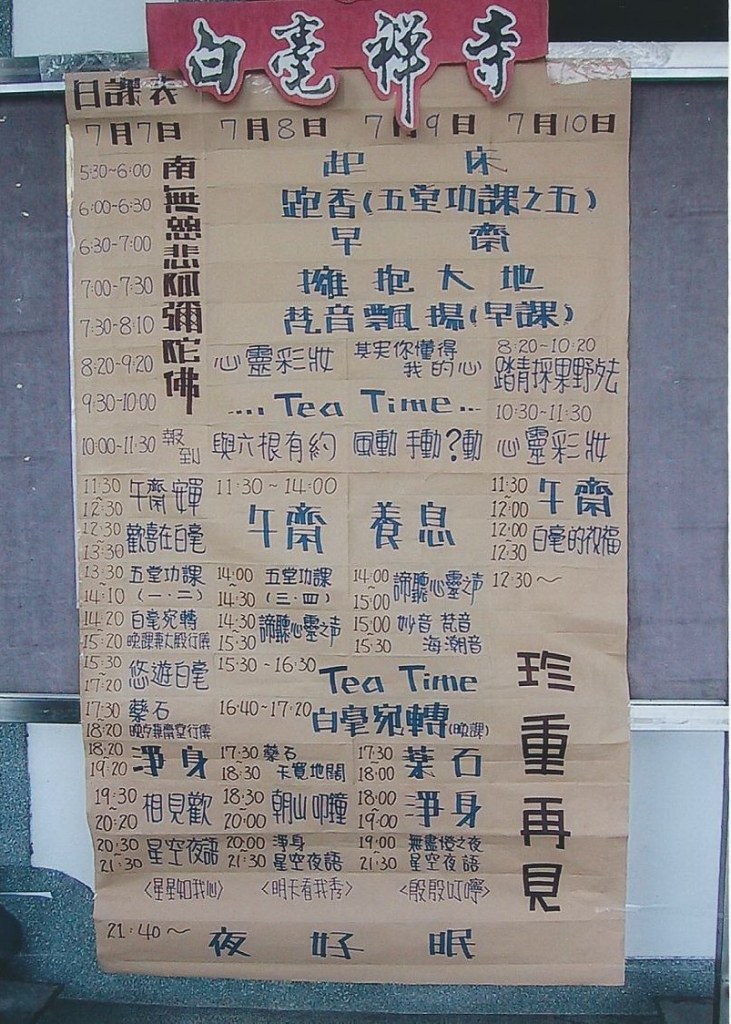 白毫禪寺
日課表
7月7日 7月8日 7月9日 7月10日
南無慈悲阿彌陀佛
5:30~6:00 起床
6:00~6:30 跑香(五堂功課之五)
6:30~7:00 早齋
7:00~7:30 擁抱大地
7:30~8:10 梵音飄揚(早課)
8:20~9:20 心靈彩妝 其実你懂得我的心 8:20~10:20 踏青採果野放去
9:30~10:00 ....Tea Time... 10:30~11:30
10:00~11:30 報到 與六根有約 風動手動?動 心靈彩妝
11:30~12:30 午齋安單 11:30~14:00 午齋 養息 11:30~12:00 午齋
12:30~13:30 歡喜在白毫 12:00~12:30 白毫的祝福
13:30~14:10 五堂功課(一.二) 14:00~14:30 五堂功課(三.四) 14:00~15:00 諦聽心靈之声 12:30~
14:20~15:20 白毫宛轉 晚課兼大殿行儀 14:30~15:30 諦聽心靈之声 15:00~15:30 妙音梵音海潮音
15:30~17:20 悠遊白毫 15:30~16:30 Tea Time
17:30~18:20 藥石 16:40~17:20 白毫宛轉(晚課)
18:20~19:20 淨身 17:30~18:30 藥石 17:30~18:00 藥石
19:30~20:20 相見歡 18:30~20:00 朝山叩鐘 18:00~19:00 淨身
20:30~21:30 星空夜語 20:00~21:30 淨身 星空夜語 19:00~21:30 無盡燈之夜 星空夜語
〈星星知我心〉 〈明天看我秀〉 〈殷殷叮嚀〉
21:40~ 夜好眠
珍重再見